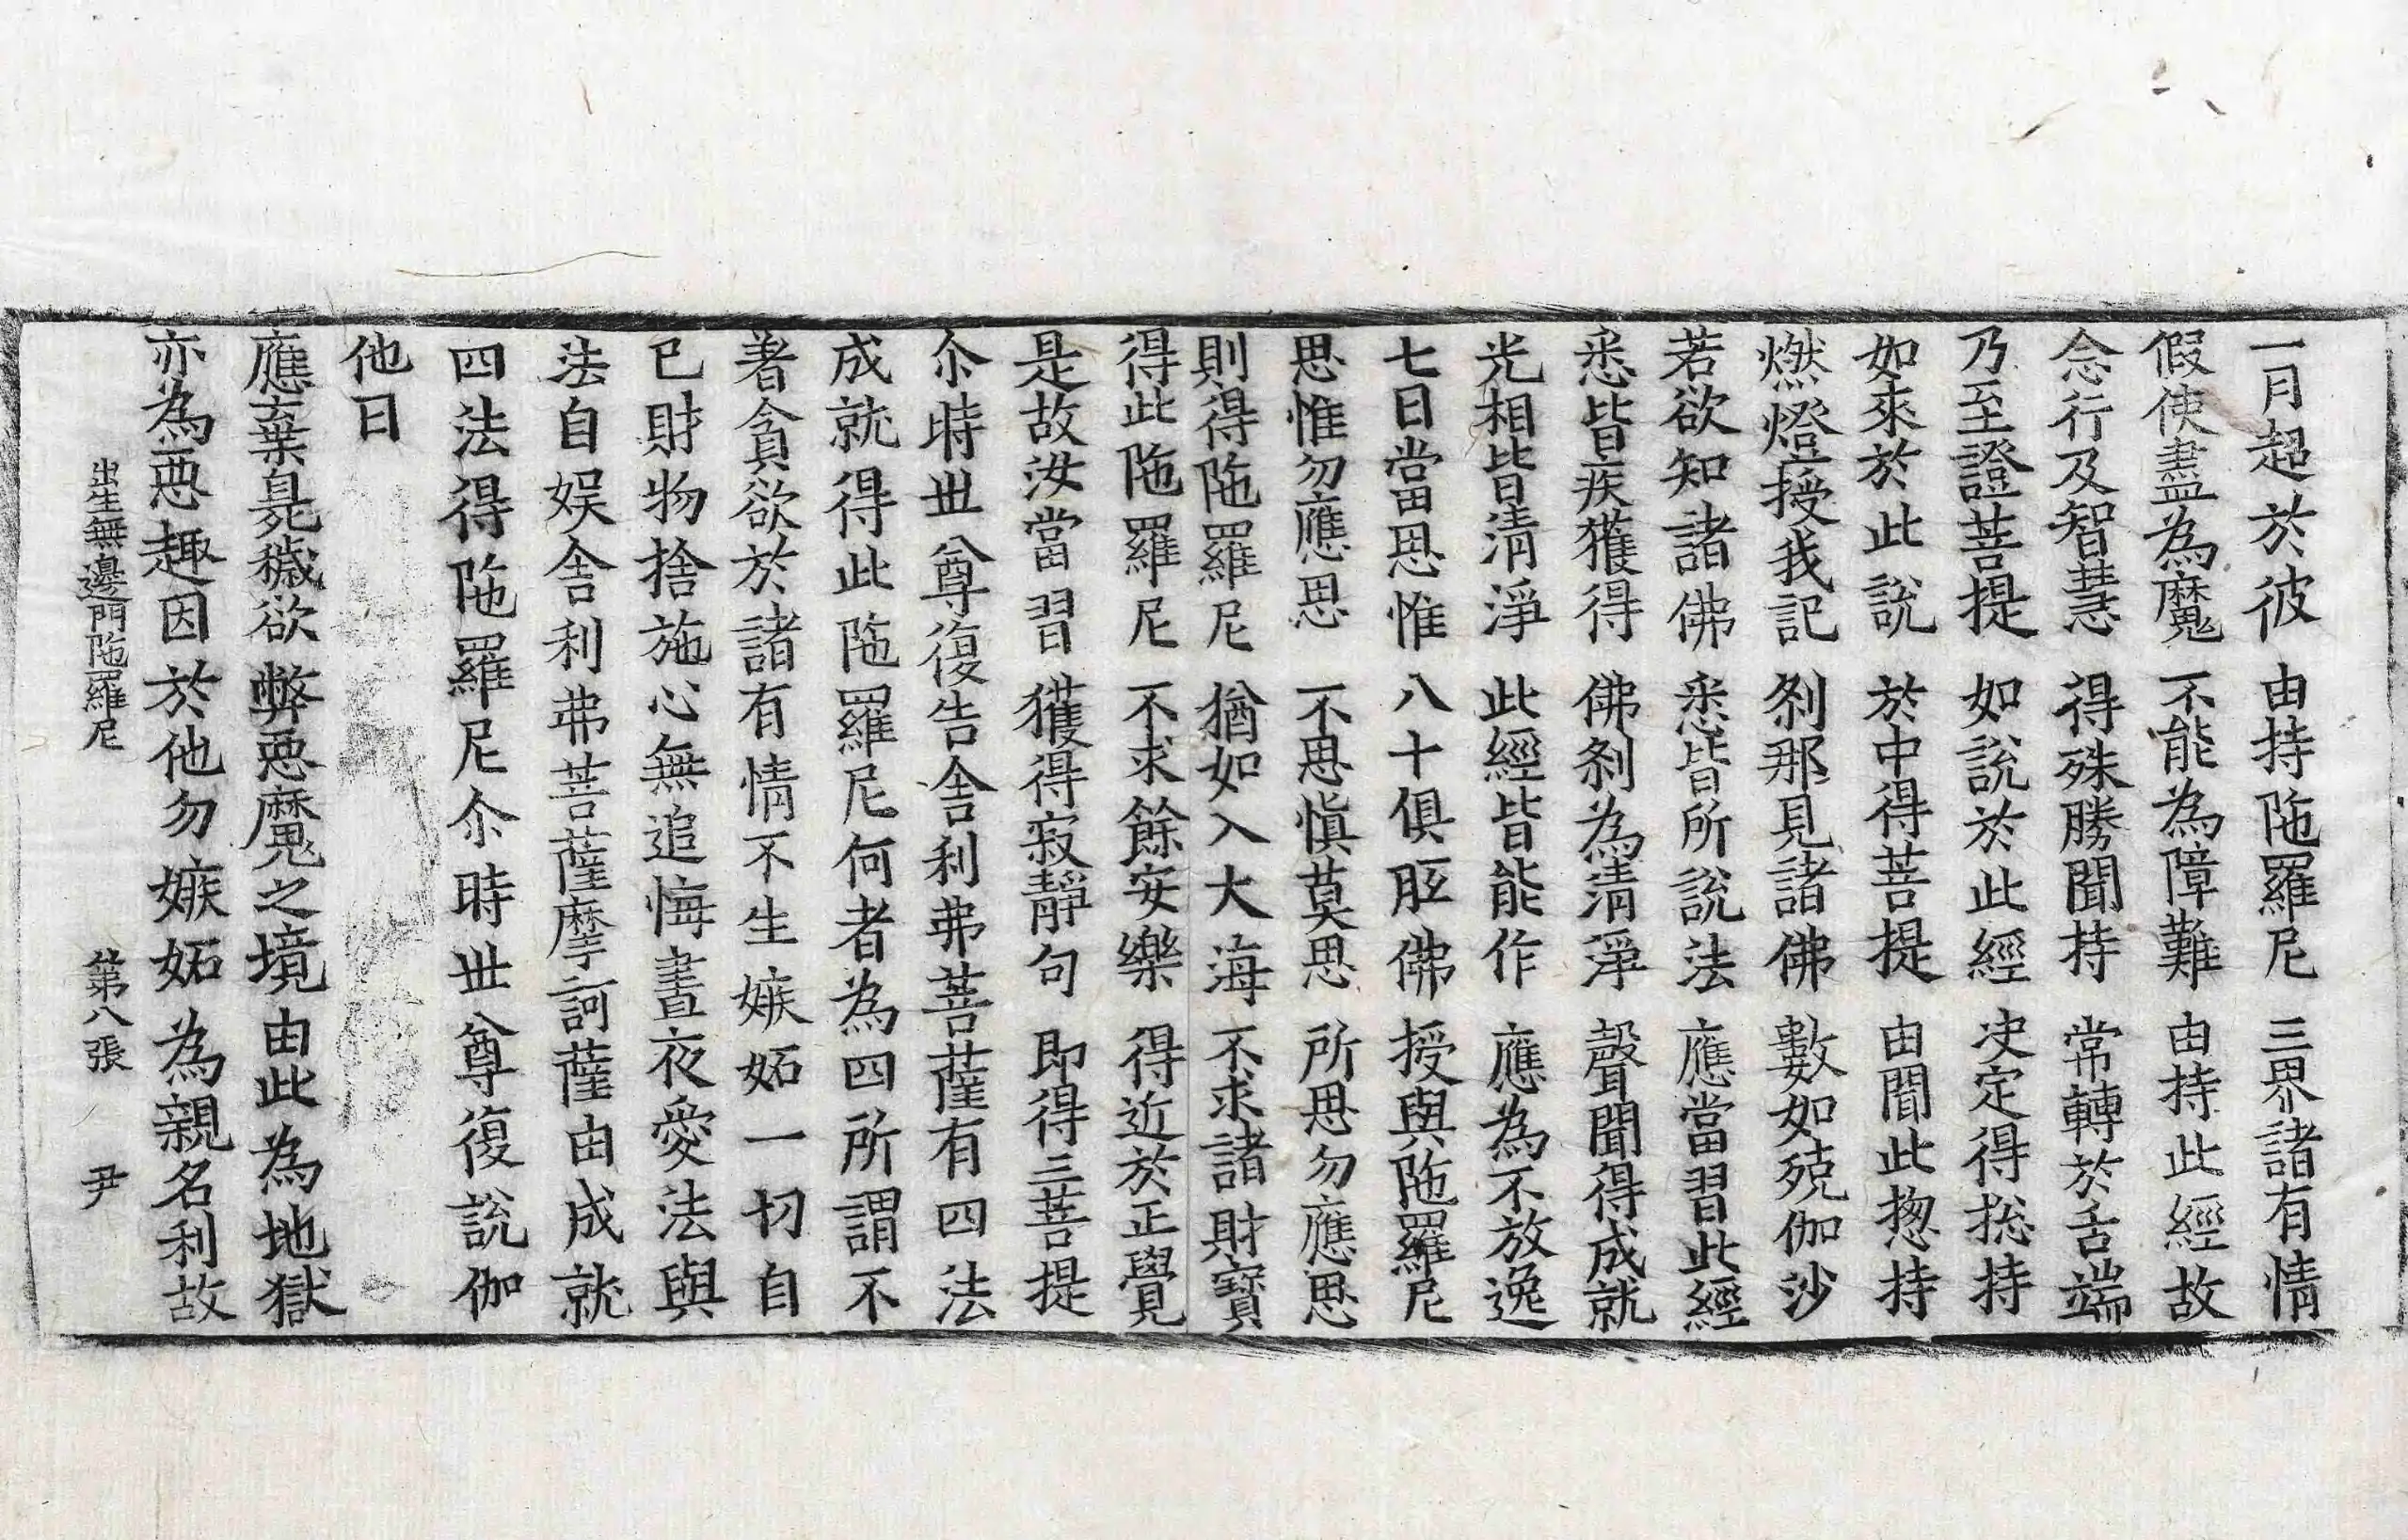 一月超於彼 由持陁羅尼 三界諸有情
假使盡為魔 不能為障難 由持此經故
念行及智慧 得殊勝聞持 常轉於舌端
乃至證菩提 如說於此經 决定得捴持
如來於此說 於中得菩提 由聞此捴持
燃燈授我記 刹那見諸佛 數如兢伽沙
若欲知諸佛 悉皆所說法 應當習此經
悉皆疾獲得 佛刹為清淨 聲聞得成就
光相皆清淨 此經皆能作 應為不放逸
七日當思惟 八十俱胝佛 授與陁羅尼
思惟勿應思 不思慎莫思 所思勿應思
則得陁羅尼 猶如入大海 不求諸財寶
得此陁羅尼 不求餘安樂 得近於正覺
是故汝當習 獲得寂靜句 即得三菩提
尒時世尊復告舍利弗菩薩有四法
成就得此陁羅尼何者為四所謂不
著貪欲於諸有情不生嫉妬一切自
已財物捨施心無追悔晝夜愛法與
法自娛舍利弗菩薩摩訶薩由成就
四法得陁羅尼尒時世尊復說伽
他曰
應棄是穢欲 弊惡魔之境 由此為地獄
亦為惡趣因 於他勿嫉妬 為親名利故
出生無邊門陁羅尼 第八張 尹